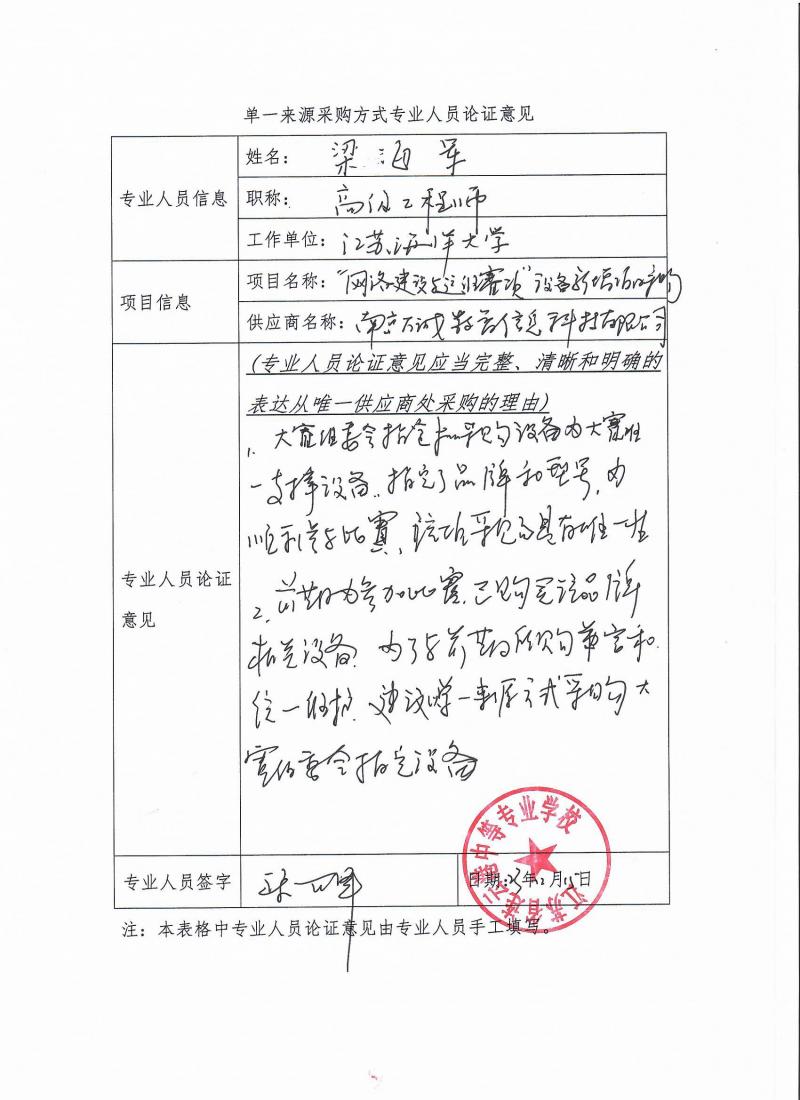 单一来源采购方式专业人员论证意见
专业人员信息
姓名：梁海军
职称：高级工程师
工作单位：江苏海洋大学
项目信息
项目名称：“网络建设与运维赛项”设备新增项目采购
供应商名称：南京百诚数云信息科技有限公司
专业人员论证
意见
(专业人员论证意见应当完整、清晰和明确的
表达从唯一供应商处采购的理由)
1、大赛组委会指定采购设备为大赛唯
一支撑设备，指定了品牌和型号，为
顺利参与比赛，该项采购具有唯一性
2、前期为参加比赛，已购买该品牌
相关设备，为了与前期所购兼容和
统一维护，建议单一来源方式采购大
赛组委会指定设备
专业人员签字
日期：23年2月15日
江苏省连云港中等专业学校
注：本表格中专业人员论证意见由专业人员手工填写。